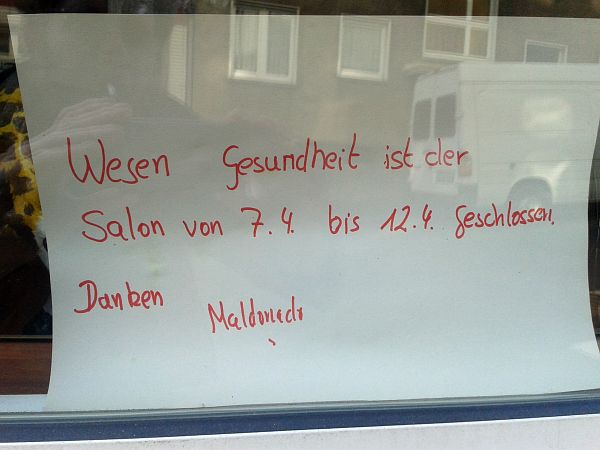 Wesen Gesundheit ist der
Salon von 7.4. bis 12.4. geschlossen.
Danken